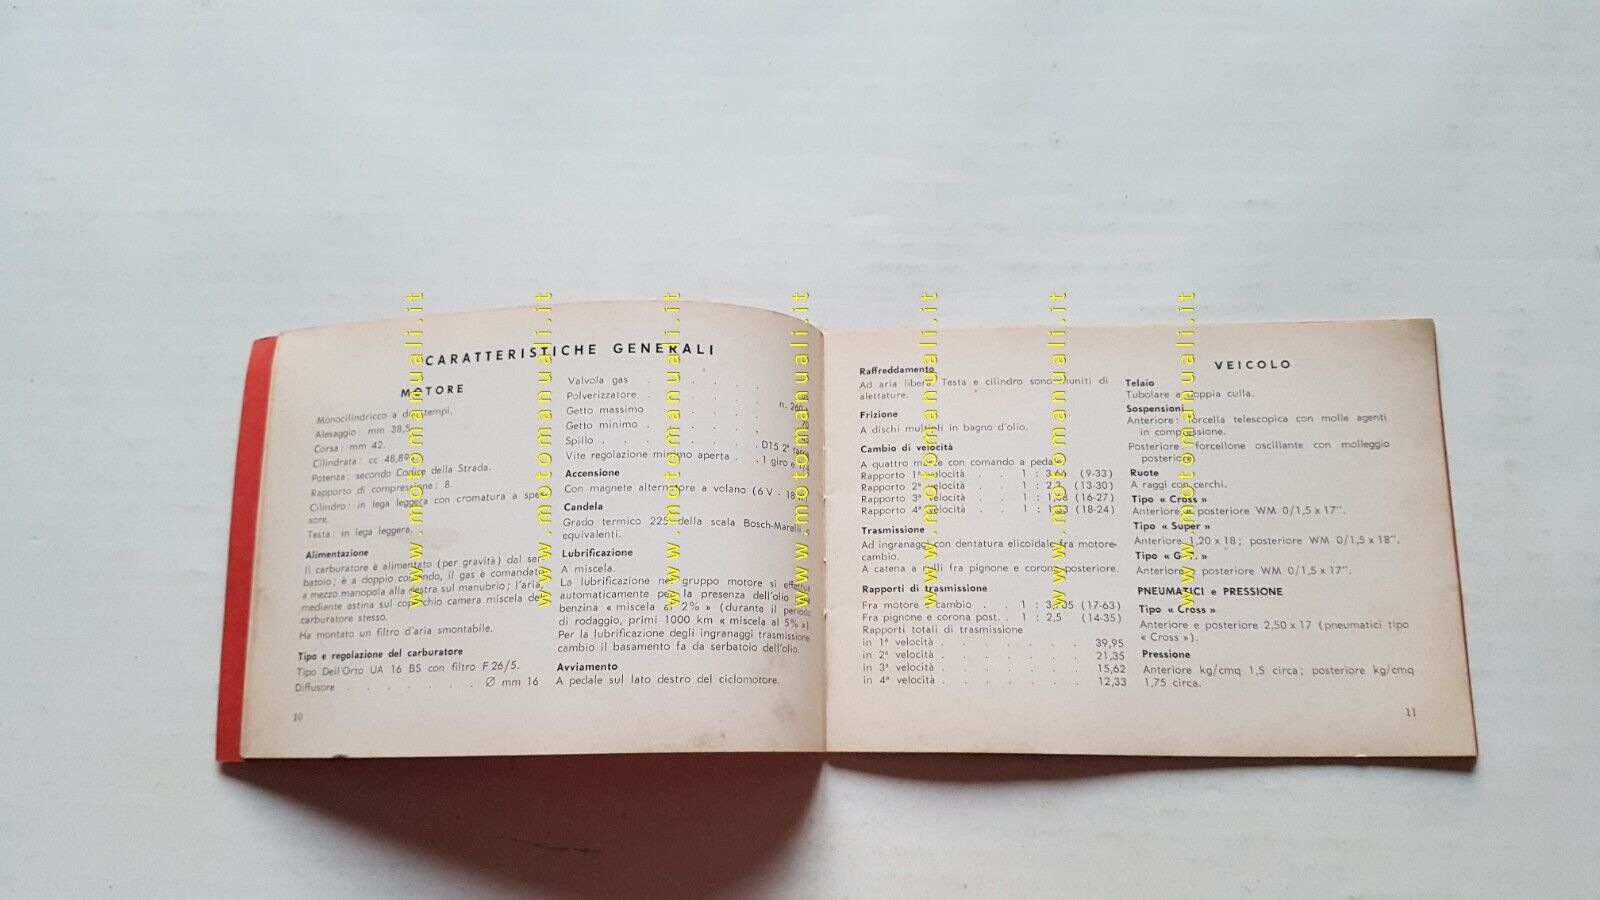 CARATTERISTICHE GENERALI
MOTORE
Monocilindrico a due tempi.
Alesaggio: mm 38,5
Corsa: mm 42.
Cilindrata: cc 48,89
Potenza: secondo Codice della Strada.
Rapporto di compressione: 8.
Cilindro: in lega leggera con cromatura a spes-
sore.
Testa: in lega leggera.
Alimentazione
Il carburatore è alimentato (per gravità) dal ser-
batoio; è a doppio comando, il gas è comandato
a mezzo manopola alla destra sul manubrio; l'aria,
mediante astina sul coperchio camera miscela del
carburatore stesso.
Ha montato un filtro d'aria smontabile.
Tipo e regolazione del carburatore
Tipo Dell'Orto UA 16 BS con filtro F 26/5.
Diffusore . . . . . . . Ø mm 16
10
Valvola gas . . . . . .
Polverizzatore . . . . . n. 260
Getto massimo . . . . . 70
Getto minimo . . . . .
Spillo . . . . . . . D15 2ª tacca
Vite regolazione minimo aperta . . 1 giro e 1/4
Accensione
Con magnete alternatore a volano (6 V - 18
Candela
Grado termico 225 della scala Bosch-Marelli o
equivalenti.
Lubrificazione
A miscela.
La lubrificazione nel gruppo motore si effettua
automaticamente per la presenza dell'olio
benzina « miscela al 2% » (durante il periodo
di rodaggio, primi 1000 km « miscela al 5% »)
Per la lubrificazione degli ingranaggi trasmissione
cambio il basamento fa da serbatoio dell'olio.
Avviamento
A pedale sul lato destro del ciclomotore.
Raffreddamento
Ad aria libera. Testa e cilindro sono muniti di
alettature.
Frizione
A dischi multipli in bagno d'olio.
Cambio di velocità
A quattro marce con comando a pedale
Rapporto 1ª velocità . . 1 : 3,66 (9-33)
Rapporto 2ª velocità . . 1 : 2,3 (13-30)
Rapporto 3ª velocità . . 1 : 1,68 (16-27)
Rapporto 4ª velocità . . 1 : 1,33 (18-24)
Trasmissione
Ad ingranaggi con dentatura elicoidale fra motore-
cambio.
A catena a rulli fra pignone e corona posteriore.
Rapporti di trasmissione
Fra motore e cambio . . 1 : 3,705 (17-63)
Fra pignone e corona post. . 1 : 2,5 (14-35)
Rapporti totali di trasmissione
in 1ª velocità . . . . . . . 39,95
in 2ª velocità . . . . . . . 21,35
in 3ª velocità . . . . . . . 15,62
in 4ª velocità . . . . . . . 12,33
VEICOLO
Telaio
Tubolare a doppia culla.
Sospensioni
Anteriore: forcella telescopica con molle agenti
in compressione.
Posteriore: forcellone oscillante con molleggio
posteriore.
Ruote
A raggi con cerchi.
Tipo « Cross »
Anteriore e posteriore WM 0/1,5 x 17".
Tipo « Super »
Anteriore 1,20 x 18; posteriore WM 0/1,5 x 18".
Tipo « G.T. »
Anteriore e posteriore WM 0/1,5 x 17".
PNEUMATICI e PRESSIONE
Tipo « Cross »
Anteriore e posteriore 2,50 x 17 (pneumatici tipo
« Cross »).
Pressione
Anteriore kg/cmq 1,5 circa; posteriore kg/cmq
1,75 circa.
11
www.motomanuali.it
www.motomanuali.it
www.motomanuali.it
www.motomanuali.it
www.motomanuali.it
www.motomanuali.it
www.motomanuali.it